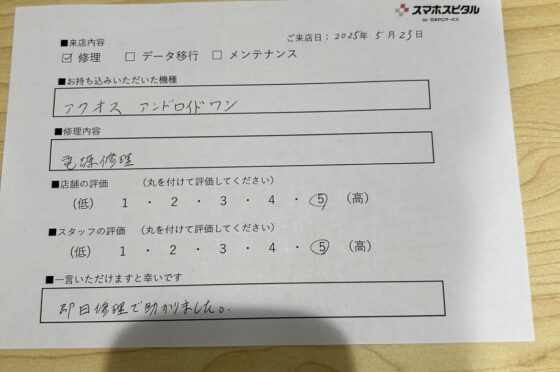 スマホスピタル
by 日本PCサービス
ご来店日：2025年 5月23日
■来店内容
☑ 修理 □ データ移行 □ メンテナンス
■お持ち込みいただいた機種
アクオス アンドロイドワン
■修理内容
電源修理
■店舗の評価 （丸を付けて評価してください）
（低） 1 ・ 2 ・ 3 ・ 4 ・ 5 （高）
■スタッフの評価 （丸を付けて評価してください）
（低） 1 ・ 2 ・ 3 ・ 4 ・ 5 （高）
■一言いただけますと幸いです
即日修理で助かりました。